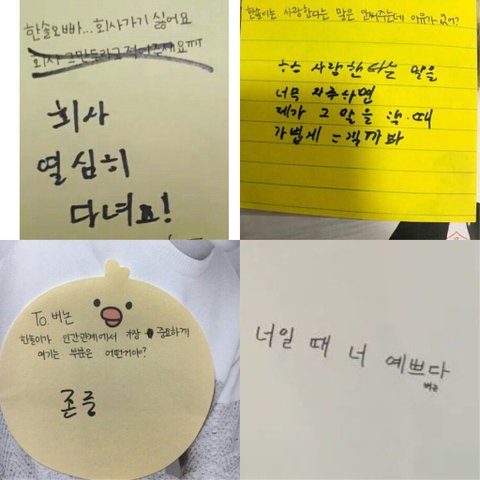 한솔오빠...회사가기 싫어요
회사 그만두라고 적어주세요ㅠㅠ
회사
열심히
다녀요!
한솔이는 사랑한다는 말은 안해주는데 이유가 있어?
사랑한다는 말을
너무 자주하면
제가 그 말을 할 때
가볍게 느낄까봐
To. 버논
한솔이가 인간관계에서 가장 중요하게
여기는 부분은 어떤거야?
존중
너일 때 너 예쁘다
버논